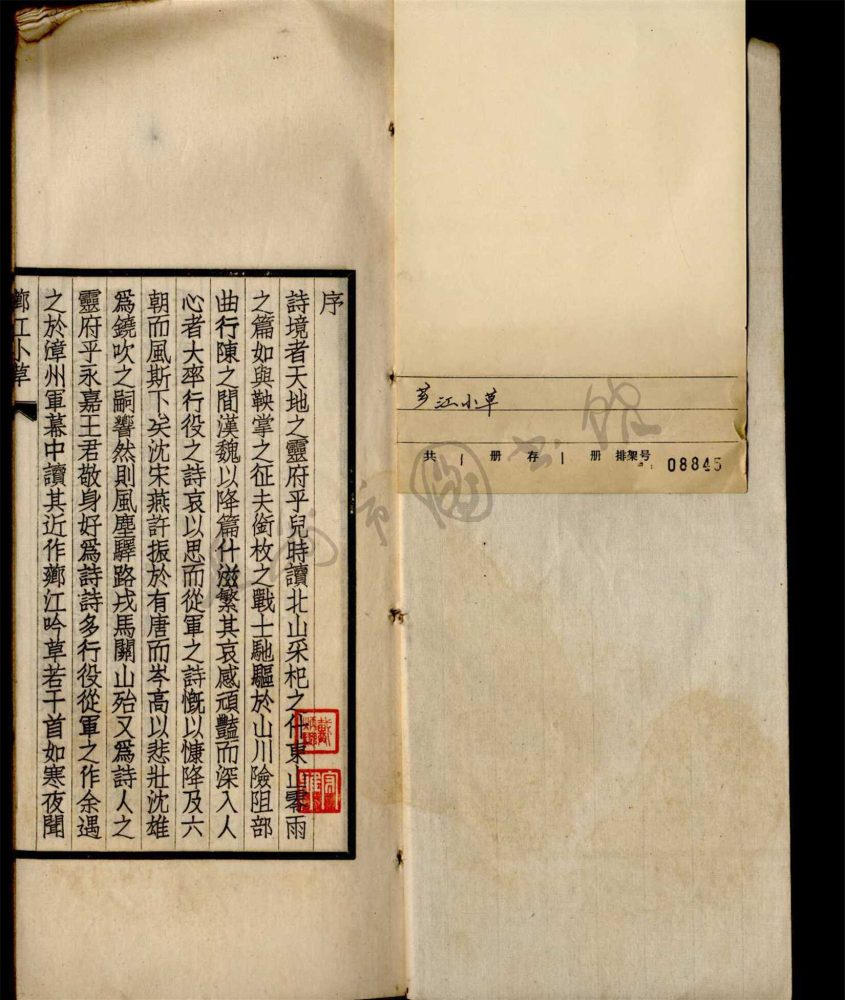 芗江小草
共 1 册 存 1 册 排架号 08845
序
詩境者天地之靈府乎兒時讀北山采杞之什東山零雨
之篇如與鞅掌之征夫銜枚之戰士馳驅於山川險阻部
曲行陳之間漢魏以降篇什滋繁其哀感頑豔而深入人
心者大率行役之詩哀以思而從軍之詩慨以慷降及六
朝而風斯下矣沈宋燕許振於有唐而岑高以悲壯沈雄
爲鐃吹之嗣響然則風塵驛路戎馬關山殆又爲詩人之
靈府乎永嘉王君敬身好爲詩詩多行役從軍之作余遇
之於漳州軍幕中讀其近作薌江吟草若干首如寒夜聞
薌江小草